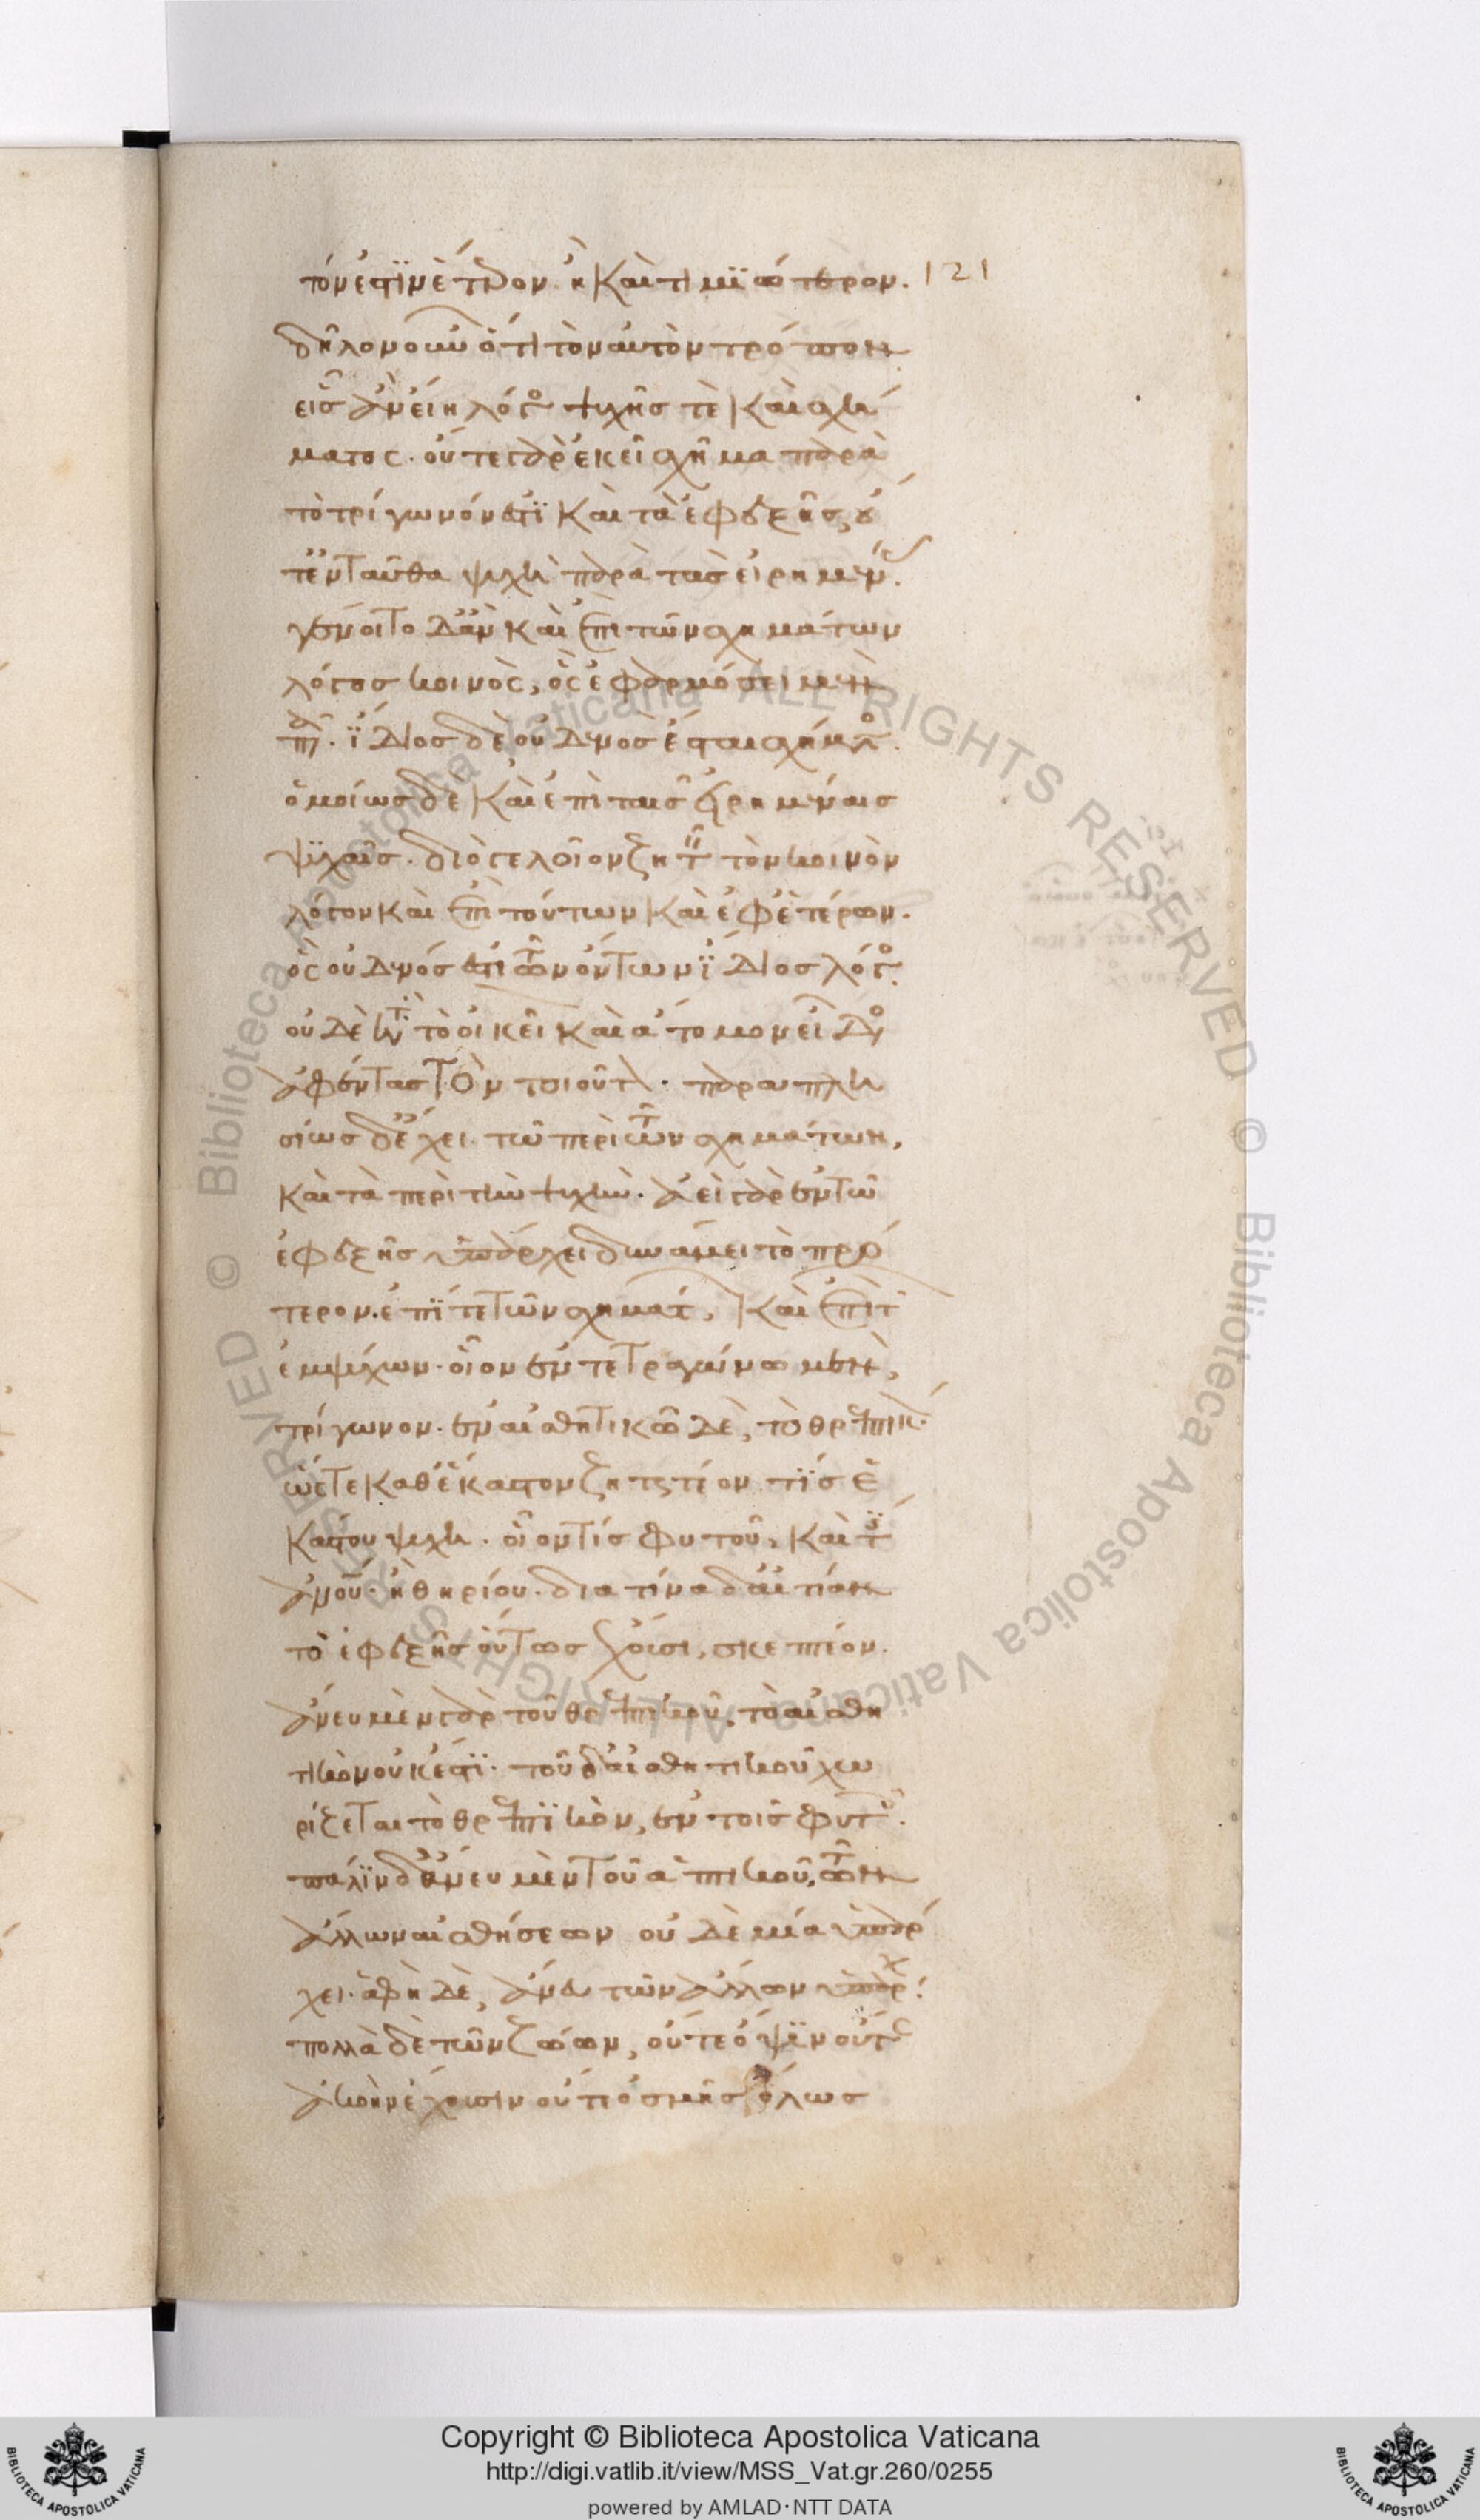 τόν ἐστὶν ἕτερον ἢ καὶ τιμιώτερον. 121
δῆλον οὖν ὅτι τὸν αὐτὸν τρόπον
εἷς ἂν εἴη λόγος ψυχῆς τὲ καὶ σχή
ματος. οὔτε γὰρ ἐκεῖ σχῆμα παρὰ
τὸ τρίγωνόν ἐστι καὶ τὰ ἐφεξῆς, οὔ
τ' ἐνταῦθα ψυχὴ παρὰ τὰς εἰρημένας.
γένοιτο δ' ἂν καὶ ἐπὶ τῶν σχημάτων
λόγος κοινὸς, ὃς ἐφαρμόσει μὲν
πᾶσιν. ἴδιος δὲ οὐδενὸς ἔσται σχήματος.
ὁμοίως δὲ καὶ ἐπὶ ταῖς εἰρημέναις
ψυχαῖς. διὸ γελοῖον ζητεῖν τὸν κοινὸν
λόγον καὶ ἐπὶ τούτων καὶ ἐφ' ἑτέρων.
ὃς οὐδενός ἐστι τῶν ὄντων ἴδιος λόγος.
οὐδὲ κατὰ τὸ οἰκεῖ καὶ ἄτομον εἶδος
ἀφέντας τὸν τοιοῦτον. παραπλη
σίως δ' ἔχει τῷ περὶ τῶν σχημάτων,
καὶ τὰ περὶ τὴν ψυχήν. ἀεὶ γὰρ ἐν τῷ
ἐφεξῆς ὑπάρχει δυνάμει τὸ πρό
τερον. ἐπί τε τῶν σχημάτων, καὶ ἐπὶ τῶν
ἐμψύχων. οἷον ἐν τετραγώνω μὲν,
τρίγωνον. ἐν αἰσθητικῶ δὲ, τὸ θρεπτικόν.
ὥστε καθ' ἕκαστον ζητητέον τίς ἑ
κάστου ψυχή. οἷον τίς φυτοῦ, καὶ τίς
ἀνθρώπου. ἢ θηρίου. διὰ τίνα δ' αἰτίαν
τὸ ἐφεξῆς οὕτως ἔχουσι, σκεπτέον.
ἄνευ μὲν γὰρ τοῦ θρεπτικοῦ, τὸ αἰσθη
τικὸν οὐκ ἔστι. τοῦ δ' αἰσθητικοῦ χω
ρίζεται τὸ θρεπτικὸν, ἐν τοῖς φυτοῖς.
πάλιν δ' ἄνευ μὲν τοῦ ἁπτικοῦ, τῶν
ἄλλων αἰσθήσεων οὐδὲ μία ὑπάρ
χει. ἁφὴ δὲ, ἄνευ τῶν ἄλλων ὑπάρχει.
πολλὰ δὲ τῶν ζώων, οὔτε ὄψιν οὔτε
ἀκοὴν ἔχουσιν οὔτ' ὀσμῆς ὅλως
Copyright © Biblioteca Apostolica Vaticana
http://digi.vatlib.it/view/MSS_Vat.gr.260/0255
powered by AMLAD·NTT DATA